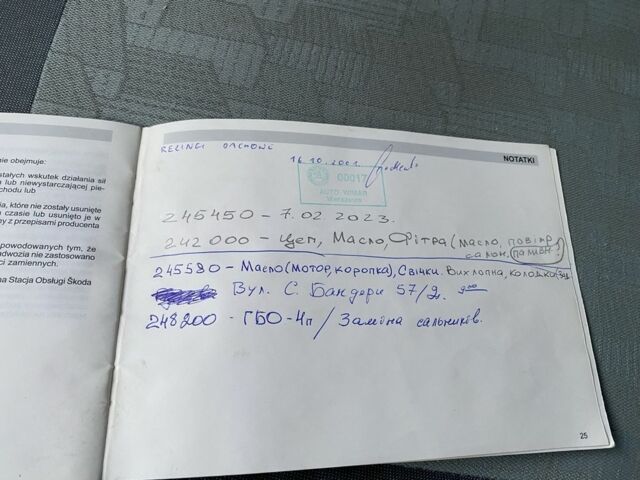 nie obejmuje:
stałych wskutek działania sił
lub niewystarczającej pie-
chodu lub
a, które nie zostały usunięte
czasie lub usunięto je w
y z przepisami producenta
powodowanych tym, że
adwozia nie zastosowano
ci zamiennych.
na Stacja Obsługi Škoda
NOTATKI
RELINGI DACHOWE
16.10.2001
00017
AUTO WIMAR
245450 - 7.02 2023.
242 000 - Цеп, Масло, Фітра (масло, повітр
салон, палива)
245580 - Масло (мотор, коропка), Свічки. Вихлопна, колодка
Вул. С. Бандери 57/2.
248200 - ГБО-4п / Заміна сальників.
25